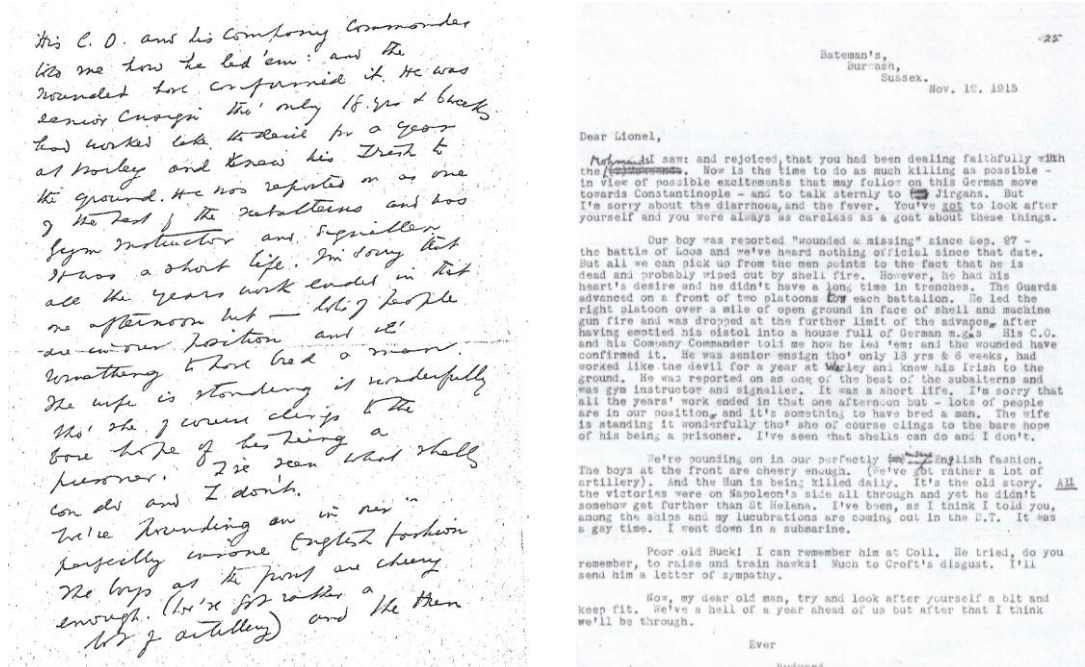 His C. O. and his Company Commander
told me how he led 'em: and the
wounded have confirmed it. He was
senior Ensign tho' only 18 yrs & 6 weeks
had worked like the devil for a year
at Warley and knew his Irish to
the ground. He was reported on as one
of the best of the subalterns and was
gym instructor and signaller.
It was a short life. I'm sorry that
all the years work ended in that
one afternoon but — lots of people
are in our position and it's
something to have bred a man.
The wife is standing it wonderfully
tho' she of course clings to the
bare hope of his being a
prisoner. I've seen what shells
can do and I don't.
We're pounding on in our
perfectly insane English fashion
The boys at the front are cheery
enough. (We've got rather a
lot of artillery) and the Hun
25
Bateman's,
Burwash,
Sussex.
Nov. 12, 1915
Dear Lionel,
Mohmands I saw: and rejoiced, that you had been dealing faithfully with
the. Now is the time to do as much killing as possible -
in view of possible excitements that may follow on this German move
towards Constantinople - and to talk sternly to Jirgahs. But
I'm sorry about the diarrhoea, and the fever. You've got to look after
yourself and you were always as careless as a goat about these things.
Our boy was reported "wounded & missing" since Sep. 27 -
the battle of Loos and we've heard nothing official since that date.
But all we can pick up from the men points to the fact that he is
dead and probably wiped out by shell fire. However, he had his
heart's desire and he didn't have a long time in trenches. The Guards
advanced on a front of two platoons for each battalion. He led the
right platoon over a mile of open ground in face of shell and machine
gun fire and was dropped at the further limit of the advance, after
having emptied his pistol into a house full of German m.g.s His C.O.
and his Company Commander told me how he led 'em: and the wounded have
confirmed it. He was senior ensign tho' only 18 yrs & 6 weeks, had
worked like the devil for a year at Warley and knew his Irish to the
ground. He was reported on as one of the best of the subalterns and
was gym instructor and signaller. It was a short life. I'm sorry that
all the years' work ended in that one afternoon but - lots of people
are in our position, and it's something to have bred a man. The wife
is standing it wonderfully tho' she of course clings to the bare hope
of his being a prisoner. I've seen what shells can do and I don't.
We're pounding on in our perfectly insane English fashion.
The boys at the front are cheery enough. (We've got rather a lot of
artillery). And the Hun is being killed daily. It's the old story. All
the victories were on Napoleon's side all through and yet he didn't
somehow get further than St Helena. I've been, as I think I told you,
among the ships and my lucubrations are coming out in the D.T. It was
a gay time. I went down in a submarine.
Poor old Buck! I can remember him at Coll. He tried, do you
remember, to raise and train hawks! Much to Croft's disgust. I'll
send him a letter of sympathy.
Now, my dear old man, try and look after yourself a bit and
keep fit. We've a hell of a year ahead of us but after that I think
we'll be through.
Ever